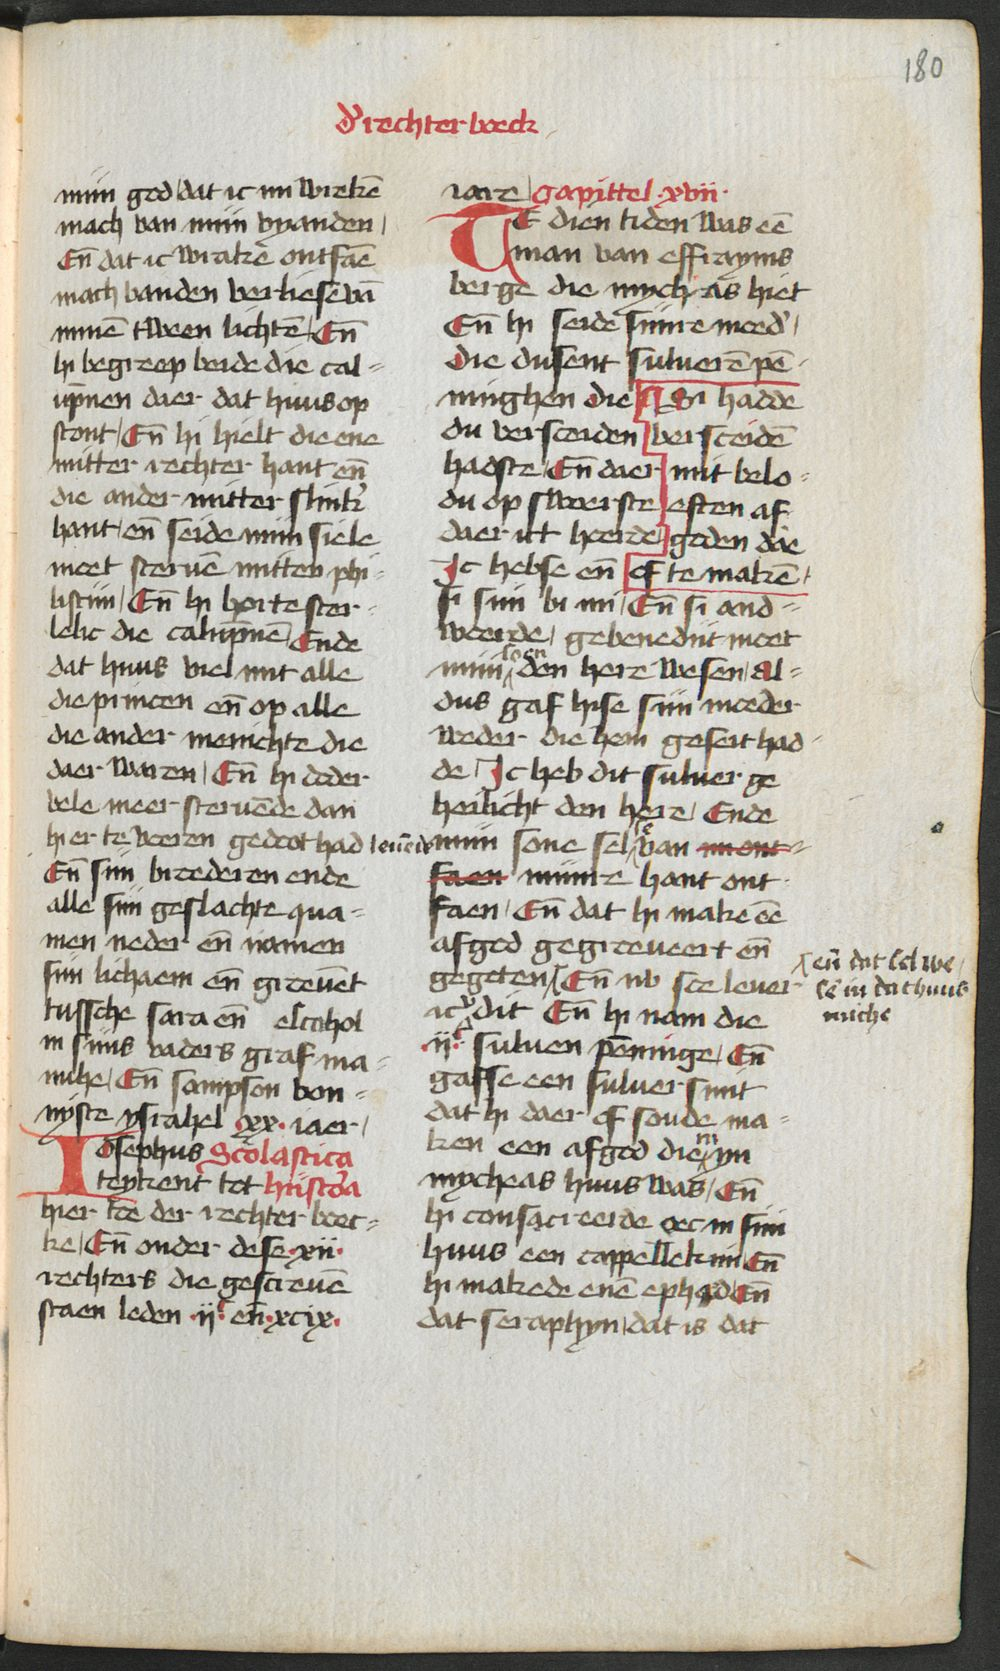 180
d' rechter boeck
mijn god / dat ic mi wrekē
mach van mijn vyanden /
Eñ dat ic wrakē ontfaē
mach van den verliesē vā
mijnē tween lichtē / Eñ
hi begreep beide die cal=
upnen daer dat huus op
stont / Eñ hi hielt die ene
mitter rechter hant eñ
die ander mitter slinker
hant / eñ seide mijn siele
moet stervē mitten phi=
listijn / Eñ hi horte ster=
kelic die calupnē Ende
dat huus viel mit alle
die princen eñ op alle
die ander menichte die
daer waren / Eñ hi doder
vele meer stervēde dan
hi er te voeren gedoot had levēde
Eñ sijn brederen ende
alle sijn geslachte qua=
men neder eñ namen
sijn lichaem eñ grevēt
tussche sara eñ estahol
in sijns vaders graf ma=
nuhe / Eñ sampson von=
niste ysrahel .xx. iaer /
Iosephus Scolastica
teykent tot historia
hier toe der rechter boec=
ke / Eñ onder dese .xii.
rechters die gescrevē
staen leden .ijc eñ .xcix.
iare / Capittel .xvii.
TE dien tiden was eē
man van effrayms
berge die mychas hiet
Eñ hi seide sijnre moed' /
Die dusent sulverē pē=
ninghen die si hadde
du versceiden versceidē
hadste / Eñ daer mit belo=
du op sweerste eften af=
daer ict hoerde / goden die
Ic hebse eñ of te makē
si sijn bi mi / Eñ si and=
weerde / gebenedijt moet
mijn soen den here wesen / al=
dus gaf hise sijn moeder
weder die hem geseit had=
de / Ic heb dit sulver ge
heilicht den here / Ende
mijn sone sel'e van mi ont=
faen mijnre hant ont=
faen / Eñ dat hi make eē
afgod gegraveert eñ
gegoten / Eñ nv so lever
ict v dit Eñ hi nam die
.ijc sulven pēninge / Eñ
gafse een sulver smit
dat hi daer of soude ma=
ken een afgod die in yn
mycheas huus was / Eñ
hi consacreerde oec in sijn
huus een cappellekijn / Eñ
hi makede enē ephod Eñ
dat seraphyn / dat is dat
eñ dat sel we
sē in dat huus
miche